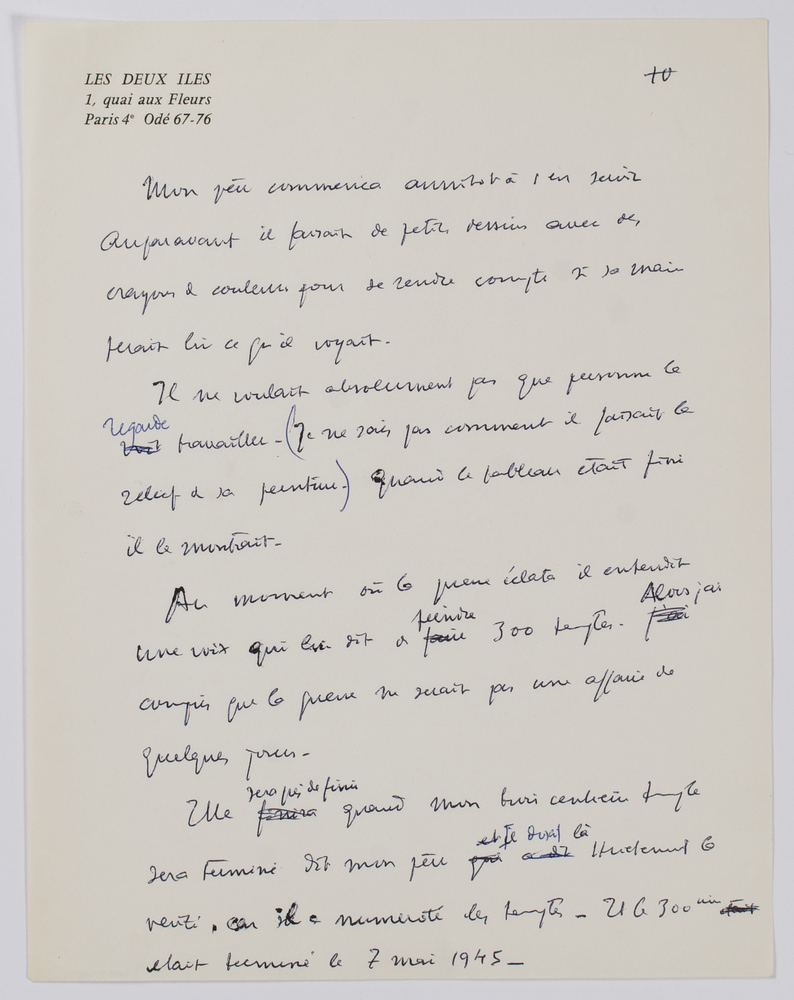 LES DEUX ILES
1, quai aux Fleurs
Paris 4e Odé 67-76
10
Mon père commença aussitôt à s'en servir
Auparavant il faisait de petits dessins avec des
crayons de couleurs pour se rendre compte si sa main
ferait bien ce qu'il voyait.
Il ne voulait absolument pas que personne le
regarde
voit travailler - (Je ne sais pas comment il faisait le
relief de sa peinture.) Quand le tableau était fini
il le montrait -
Au moment où la guerre éclata il entendit
peindre Alors j'ai
une voix qui lui dit de faire 300 temples. j'ai
compris que la guerre ne serait pas une affaire de
quelques jours -
sera près de finir
Elle finira quand mon trois centième temple
et je dirai là
sera terminé dit mon père qui a dit
verité. car il a numeroté les temples - Et le 300 ième était
était terminé le 7 mai 1945 -